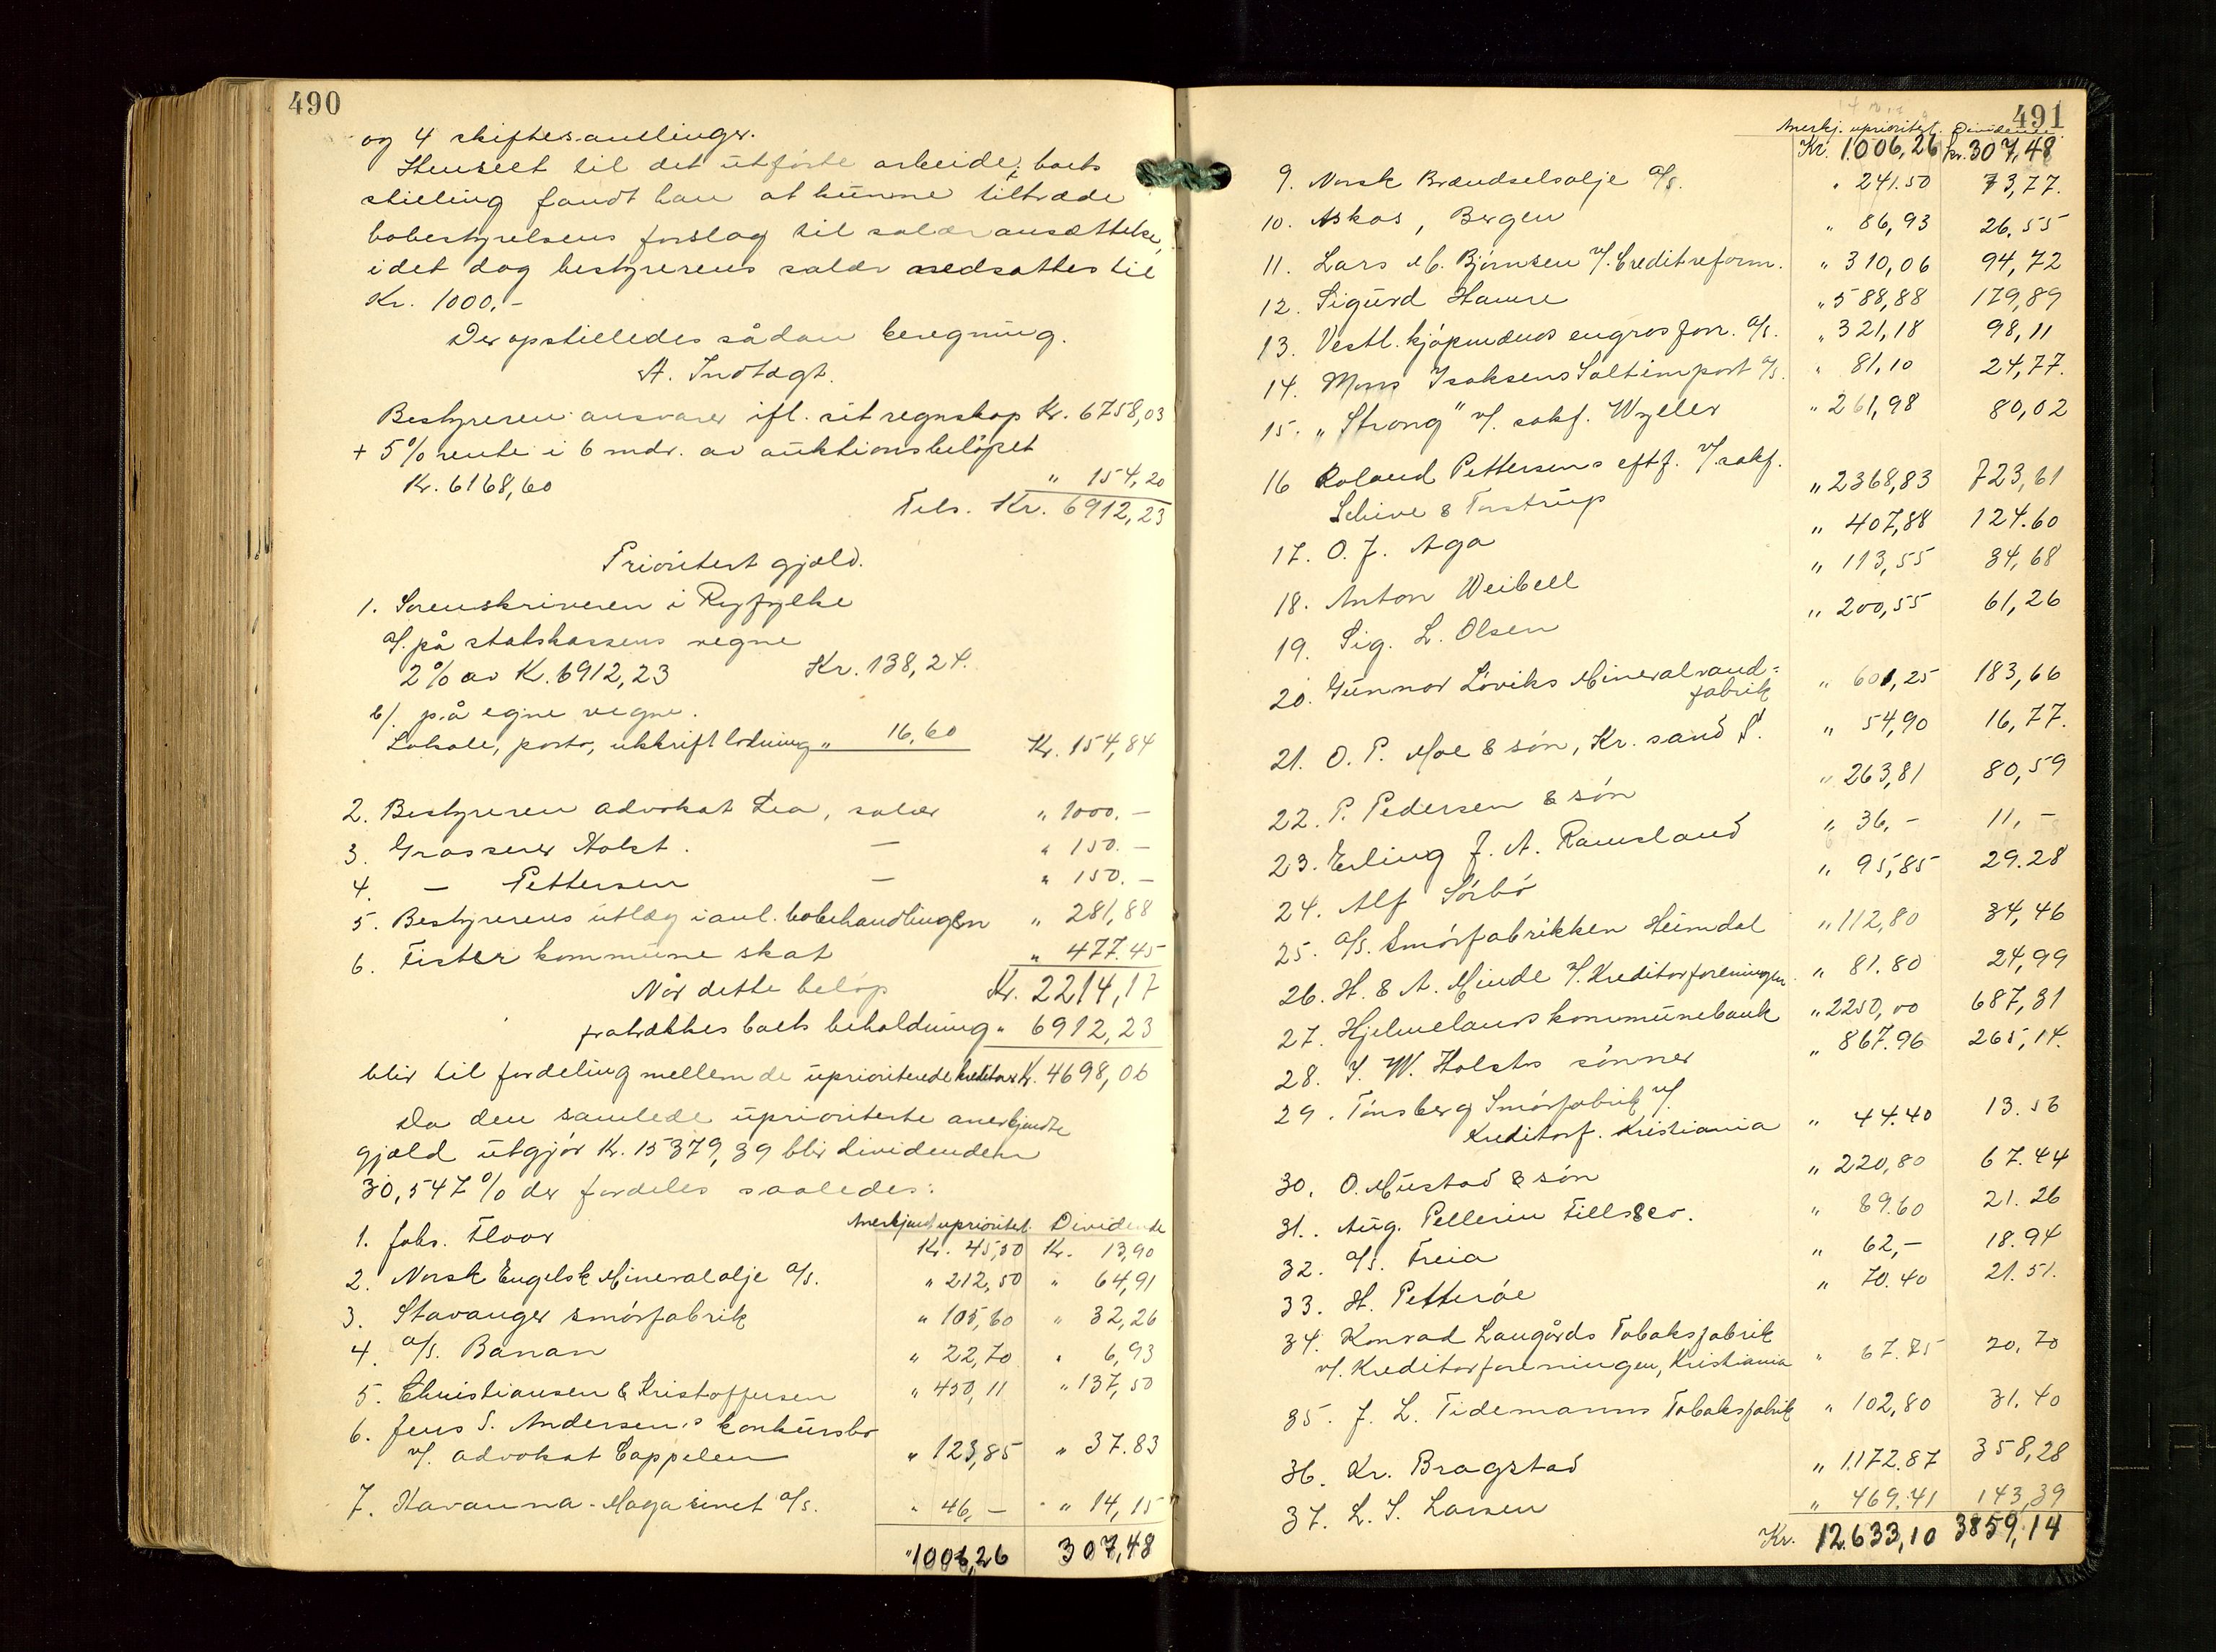 490
og 4 skiftesamlinger.
Henseet til det utførte arbeide i boets
stilling fandt han at kunne tiltræde
bobestyrelsens forslag til salæransættelse,
idet dog bestyrerens salær nedsattes til
Kr. 1000,-
Der opstilledes sådan beregning.
A. Indtægt.
Bestyreren ansvarer ifl. sit regnskap Kr. 6758,03
+ 5% rente i 6 mdr. av auktionsbeløpet
Kr. 6168,60 " 154,20
Tils. Kr. 6912,23
Prioritert gjæld.
1. Sorenskriveren i Ryfylke
a/. på statskassens vegne
2% av K. 6912,23 Kr. 138,24.
b/. på egne vegne.
Lokale, porto, utskrift lodning " 16,60 Kr. 154,84
2. Bestyreren advokat Lea, salær " 1000.-
3. Grosserer Holst. — " 150.-
4. — Pettersen — " 150.-
5. Bestyrerens utlæg i anl. bobehandlingen " 281,88
6. Fister kommune skat " 477.45
Når dette beløp Kr. 2214,17
fratrækkes boets beholdning " 6912,23
blir til fordeling mellem de uprioriterede kreditorer Kr. 4698,06
Da den samlede uprioriterte anerkjendte
gjæld utgjør Kr. 15379,39 blir dividenden
30,547% der fordeles saaledes:
Anerkjend uprioritet. Dividende
1. Johs. Floor Kr. 45,50 Kr. 13,90
2. Norsk Engelsk Mineralolje a/s. " 212,50 " 64,91
3. Stavanger smørfabrik " 105,60 " 32,26
4. a/s. Banan " 22,70 " 6,93
5. Christiansen & Kristoffersen " 450,11 " 137,50
6. Jens S. Andersens konkursbo
v/. advokat Cappelen " 123,85 " 37.83
7. Havanna-Magasinet a/s. " 46,- " 14,15
" 1006,26 307,48
491
Anerkj. uprioritet. Dividende
Kr. 1.006,26 kr. 307,48
9. Norsk Brændselsolje a/s. " 241.50 73,77.
10. Askos, Bergen " 86,93 26.55
11. Lars M. Bjørnsen v/. Creditreform. " 310,06 94,72
12. Sigurd Hamre " 588,88 179,89
13. Vestl. kjøpmænds engrosforr. a/s. " 321,18 98,11
14. Mons Isaksens Saltimport a/s. " 81,10 24,77.
15. "Strong" v/. sakf. Wyller " 261,98 80,02
16 Roland Pettersens eftf. v/. sakf.
Schive & Tostrup " 2368,83 723,61
17. O. J. Aga " 407,88 124.60
18. Anton Weibell " 113,55 34,68
19. Sig. L. Olsen " 200,55 61,26
20. Gunnar Løviks Mineralvand=
fabrik " 601,25 183,66
21. O. P. Moe & søn, Kr. sand S. " 54,90 16,77.
22. P. Pedersen & søn " 263,81 80,59
23. Erling J. A. Ramsland " 36,- 11,-
24. Alf Sørbø " 95,85 29.28
25. a/s. Smørfabrikken Heimdal " 112,80 34,46
26. H. & A. Minde v/. Kreditorforeningen. " 81.80 24,99
27. Hjelmelands kommunebank " 2250,00 687,31
28. I. W. Holsts sønner " 867.96 265,14.
29. Tønsberg Smørfabrik v/.
Kreditorf. Kristiania " 44.40 13.56
30. O. Mustad & søn " 220,80 67.44
31. Aug. Pellerin Fills&co. " 69.60 21.26
32. a/s. Freia " 62,- 18.94
33. H. Petterøe " 70.40 21.51.
34. Konrad Langårds Tobaksfabrik
v/. Kreditorforeningen, Kristiania " 67.75 20,70
35. J. L. Tidemanns Tobaksfabrik " 102,80 31.40
36. Kr. Bragstad " 1172.87 358,28
37. L. S. Larsen " 469.41 143,39
Kr. 12.633,10 3859,14